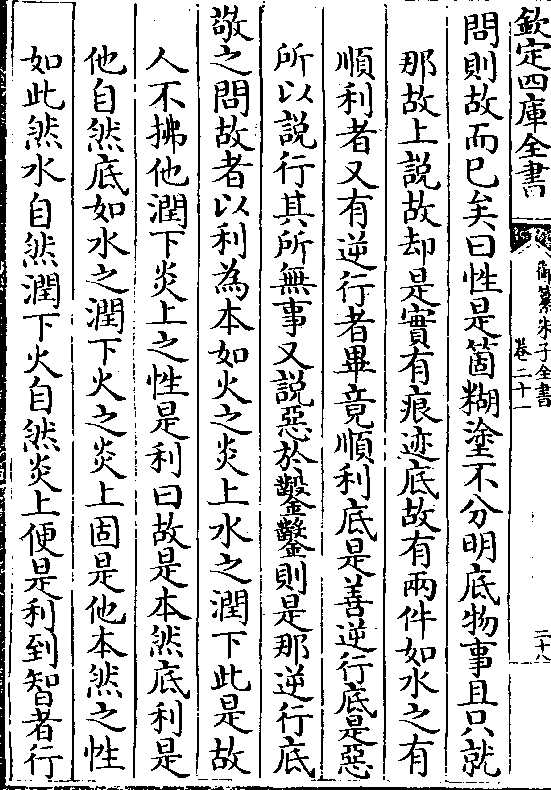 欽定四庫全書
御纂朱子全書
卷二十一
二十八
問則故而已矣曰性是箇糊塗不分明底物事且只就
那故上說故却是實有痕迹底故有兩件如水之有
順利者又有逆行者畢竟順利底是善逆行底是惡
所以說行其所無事又說惡於鑿鑿則是那逆行底
敬之問故者以利為本如火之炎上水之潤下此是故
人不拂他潤下炎上之性是利曰故是本然底利是
他自然底如水之潤下火之炎上固是他本然之性
如此然水自然潤下火自然炎上便是利到智者行